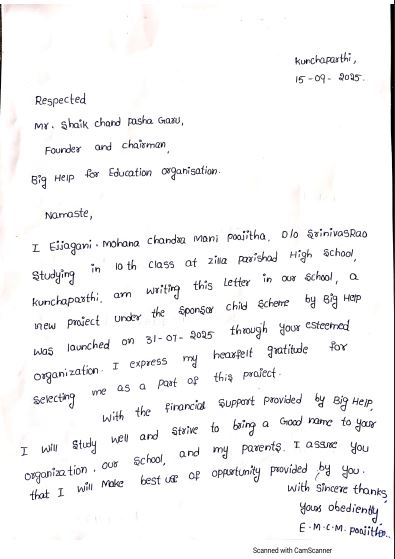 Kunchaparthi,
15-09-2025.
Respected
Mr. Shaik chand Pasha Garu,
Founder and chairman,
Big Help for Education organisation.
Namaste,
I Eijagani. Mohana chandra Mani Poojitha, D/o SrinivasRao
Studying in 10th class at Zilla parishad High School,
Kunchaparthi, am writing this Letter in our School, a
new Project under the Sponsar child Scheme by Big Help
was launched on 31-07-2025 through your esteemed
organization. I express my hearfelt gratitude for
Selecting me as a part of this project.
With the financial Support provided by Big Help,
I will Study well and Strive to bring a Good name to your
organization. our School, and my parents. I assure you
that I will Make best use of opportunity provided by you.
With Sincere thanks,
yours obediently
E.M.C.M. Poojitha..
Scanned with CamScanner